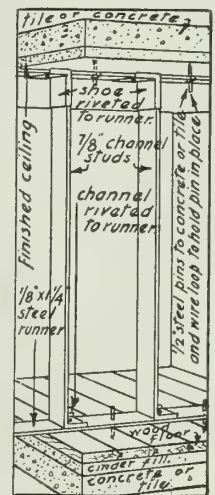 tile or concrete
shoe
riveted
to runner.
7/8" channel
studs
channel
riveted
to runner
Finished ceiling
1/2" steel pins to concrete or tile
and wire loop to hold pin in place
1/8" x 1 1/4"
steel
runner
wood
floor
cinder fill
concrete or
tile